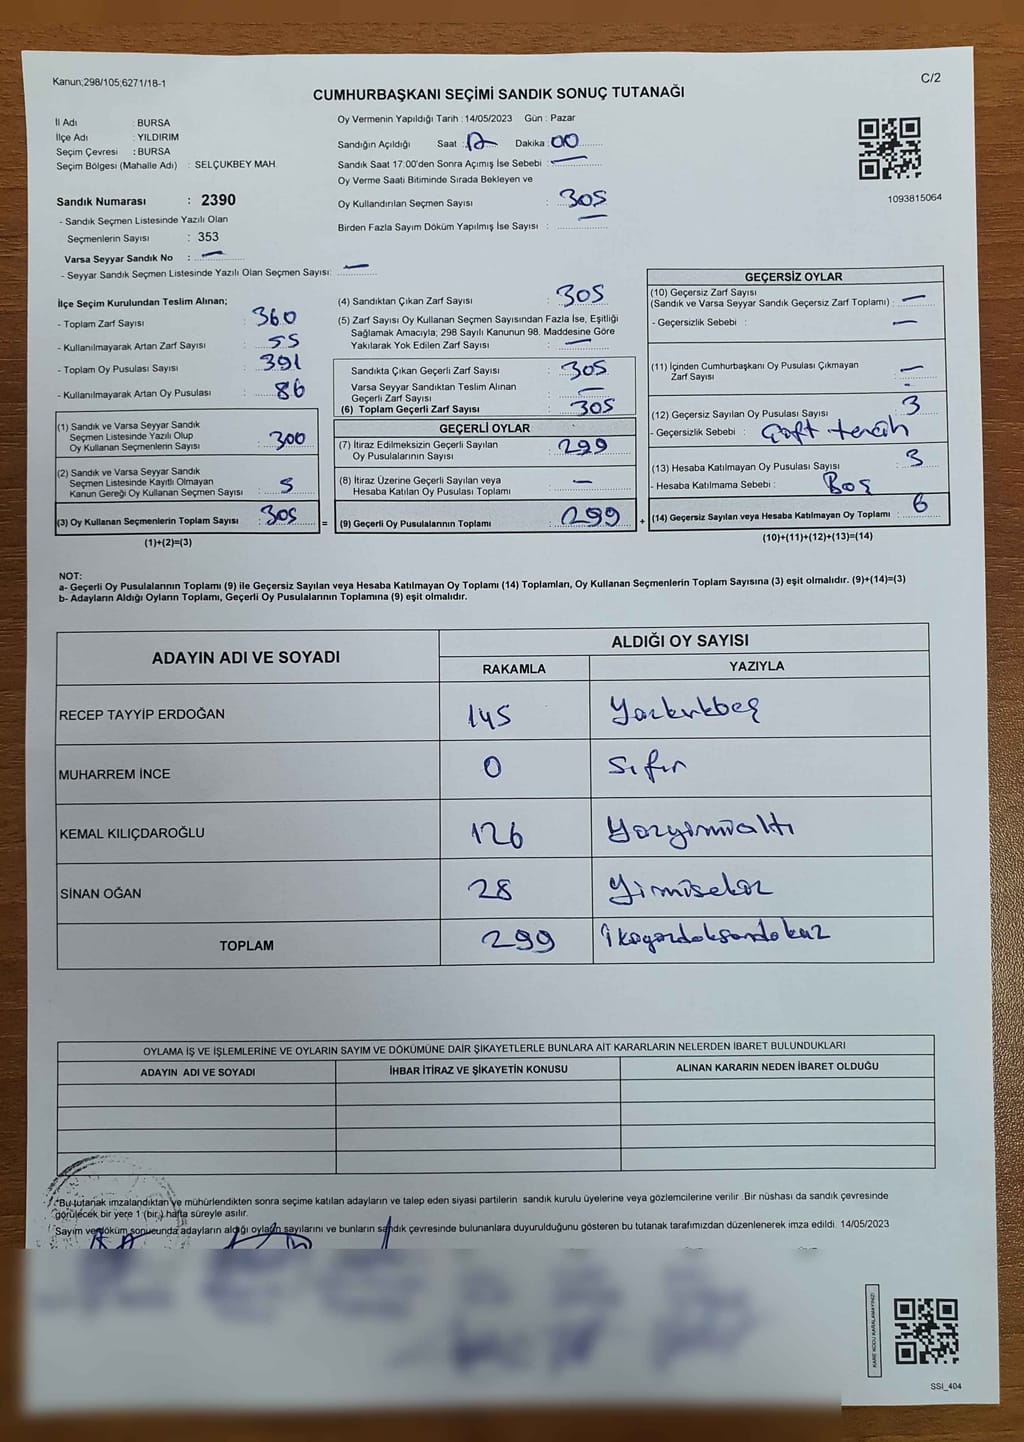 Kanun;298/105;6271/18-1
C/2
CUMHURBAŞKANI SEÇİMİ SANDIK SONUÇ TUTANAĞI
İl Adı : BURSA
İlçe Adı : YILDIRIM
Seçim Çevresi : BURSA
Seçim Bölgesi (Mahalle Adı) : SELÇUKBEY MAH.
Sandık Numarası : 2390
- Sandık Seçmen Listesinde Yazılı Olan
Seçmenlerin Sayısı : 353
Varsa Seyyar Sandık No : —
- Seyyar Sandık Seçmen Listesinde Yazılı Olan Seçmen Sayısı: —
Oy Vermenin Yapıldığı Tarih : 14/05/2023 Gün : Pazar
Sandığın Açıldığı Saat : Dakika : 00
Sandık Saat 17:00'den Sonra Açımış İse Sebebi : —
Oy Verme Saati Bitiminde Sırada Bekleyen ve
Oy Kullandırılan Seçmen Sayısı : 305
Birden Fazla Sayım Döküm Yapılmış İse Sayısı : —
1093815064
İlçe Seçim Kurulundan Teslim Alınan;
- Toplam Zarf Sayısı : 360
- Kullanılmayarak Artan Zarf Sayısı : 55
- Toplam Oy Pusulası Sayısı : 391
- Kullanılmayarak Artan Oy Pusulası : 86
(1) Sandık ve Varsa Seyyar Sandık
Seçmen Listesinde Yazılı Olup
Oy Kullanan Seçmenlerin Sayısı : 300
(2) Sandık ve Varsa Seyyar Sandık
Seçmen Listesinde Kayıtlı Olmayan
Kanun Gereği Oy Kullanan Seçmen Sayısı : 5
(3) Oy Kullanan Seçmenlerin Toplam Sayısı : 305 =
(1)+(2)=(3)
(4) Sandıktan Çıkan Zarf Sayısı : 305
(5) Zarf Sayısı Oy Kullanan Seçmen Sayısından Fazla İse, Eşitliği
Sağlamak Amacıyla; 298 Sayılı Kanunun 98. Maddesine Göre
Yakılarak Yok Edilen Zarf Sayısı : —
Sandıkta Çıkan Geçerli Zarf Sayısı : 305
Varsa Seyyar Sandıktan Teslim Alınan
Geçerli Zarf Sayısı : —
(6) Toplam Geçerli Zarf Sayısı : 305
GEÇERLİ OYLAR
(7) İtiraz Edilmeksizin Geçerli Sayılan
Oy Pusulalarının Sayısı : 299
(8) İtiraz Üzerine Geçerli Sayılan veya
Hesaba Katılan Oy Pusulası Toplamı : —
(9) Geçerli Oy Pusulalarının Toplamı : 299 +
GEÇERSİZ OYLAR
(10) Geçersiz Zarf Sayısı
(Sandık ve Varsa Seyyar Sandık Geçersiz Zarf Toplamı) : —
- Geçersizlik Sebebi : —
(11) İçinden Cumhurbaşkanı Oy Pusulası Çıkmayan
Zarf Sayısı : —
(12) Geçersiz Sayılan Oy Pusulası Sayısı : 3
- Geçersizlik Sebebi : Çift tercih
(13) Hesaba Katılmayan Oy Pusulası Sayısı : 3
- Hesaba Katılmama Sebebi : Boş
(14) Geçersiz Sayılan veya Hesaba Katılmayan Oy Toplamı : 6
(10)+(11)+(12)+(13)=(14)
NOT:
a- Geçerli Oy Pusulalarının Toplamı (9) ile Geçersiz Sayılan veya Hesaba Katılmayan Oy Toplamı (14) Toplamları, Oy Kullanan Seçmenlerin Toplam Sayısına (3) eşit olmalıdır. (9)+(14)=(3)
b- Adayların Aldığı Oyların Toplamı, Geçerli Oy Pusulalarının Toplamına (9) eşit olmalıdır.
ADAYIN ADI VE SOYADI
ALDIĞI OY SAYISI
RAKAMLA YAZIYLA
RECEP TAYYİP ERDOĞAN 145 Yüzkırkbeş
MUHARREM İNCE 0 Sıfır
KEMAL KILIÇDAROĞLU 126 Yüzyirmialtı
SİNAN OĞAN 28 Yirmisekiz
TOPLAM 299 İkiyüzdoksandokuz
OYLAMA İŞ VE İŞLEMLERİNE VE OYLARIN SAYIM VE DÖKÜMÜNE DAİR ŞİKAYETLERLE BUNLARA AİT KARARLARIN NELERDEN İBARET BULUNDUKLARI
ADAYIN ADI VE SOYADI İHBAR İTİRAZ VE ŞİKAYETİN KONUSU ALINAN KARARIN NEDEN İBARET OLDUĞU
*Bu tutanak imzalandıktan ve mühürlendikten sonra seçime katılan adayların ve talep eden siyasi partilerin sandık kurulu üyelerine veya gözlemcilerine verilir .Bir nüshası da sandık çevresinde
görülecek bir yere 1 (bir ) hafta süreyle asılır.
Sayım ve döküm sonucunda adayların aldığı oyların sayılarını ve bunların sandık çevresinde bulunanlara duyurulduğunu gösteren bu tutanak tarafımızdan düzenlenerek imza edildi. 14/05/2023
KARE KODU KARALAMAYINIZ!
SSI_404